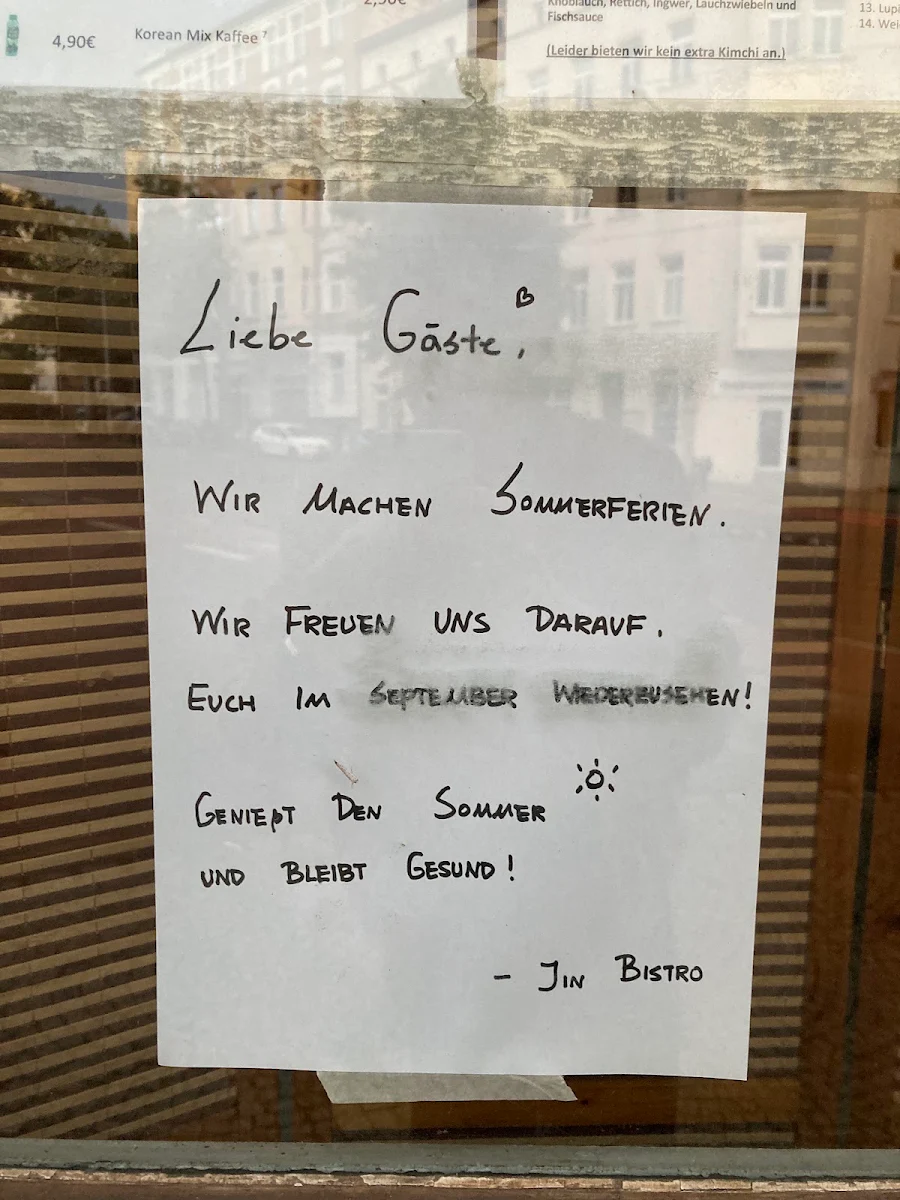 4,90€
Korean Mix Kaffee ⁷
Knoblauch, Rettich, Ingwer, Lauchzwiebeln und
Fischsauce
(Leider bieten wir kein extra Kimchi an.)
13. Lupi
14. Wei
Liebe Gäste,
WIR MACHEN SOMMERFERIEN.
WIR FREUEN UNS DARAUF,
EUCH IM SEPTEMBER WIEDERZUSEHEN!
GENIEßT DEN SOMMER
UND BLEIBT GESUND!
- JIN BISTRO